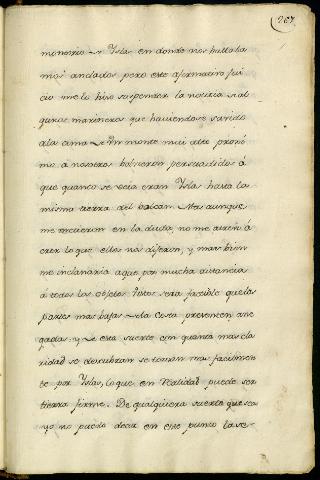 267
monorio de Yslas en donde nos hallaba
mos anclados pero este aformativo jui
cio me lo hiso sospender la noticia de al
gunos marineros que haviendose suvido
ala cima de un monte mui alto proxi
mo a nosotros bolvieron persuadidos á
que quanto se veia eran Yslas hasta la
misma tierra del bolcan. Mas aunque
me tuvieron en la duda, no me atrevi á
creer lo que ellos nos dijeron, y mas bien
me inclinaria aque por mucha distancia
á todos los objetos vistos sera factible que las
partes mas bajas de la Costa pareciesen ane
gadas. y de esta suerte con quanta mas cla
ridad se descubran se toman mas facilmen
te por Yslas, lo que en realidad puede ser
tierra firme. De qualquiera suerte que sea
yo no puedo decir en este punto la ver-